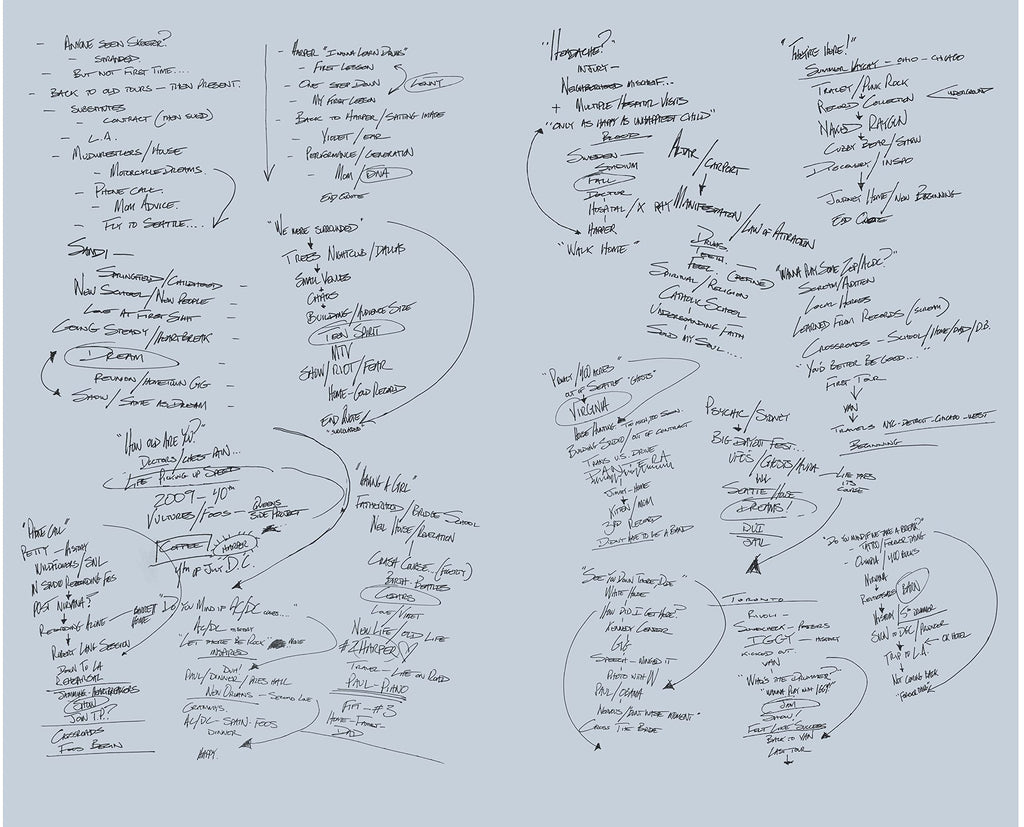 - ANYONE SEEN SKEETER?
- STRANDED
- BUT NOT FIRST TIME....
- BACK TO OLD TOURS - THEN PRESENT.
- SUBSTITUTES
- CONTRACT (THEN SUED)
- L.A.
- MUDWRESTLERS/HOUSE
- MOTORCYCLE DREAMS.
- PHONE CALL.
- MOM ADVICE.
- FLY TO SEATTLE....
SANDI -
SPRINGFIELD/CHILDHOOD
NEW SCHOOL/NEW PEOPLE
LOVE AT FIRST SIGHT
GOING STEADY/HEARTBREAK
DREAM
REUNION/HOMETOWN GIG
SHOW/SAME AS DREAM
- HARPER "I WANNA LEARN DRUMS"
- FIRST LESSON
- ONE STEP DOWN
LENNY
- MY FIRST LESSON
- BACK TO HARPER/SAME IMAGE
- VIOLET/EAR
- PERFORMANCE/GENERATION
- MOM/DNA
END QUOTE
"WE WERE SURROUNDED"
TREES NIGHTCLUB/DALLAS
SMALL VENUES
CHAOS
BUILDING/AUDIENCE SIZE
TEEN SPIRIT
MTV
SHOW/RIOT/FEAR
HOME-GOLD RECORD
END QUOTE
"SURROUNDED"
"HOW OLD ARE YOU?"
DOCTORS/CHEST PAIN...
"LIFE PICKING UP SPEED
2009-40th
VULTURES/FOOS - QUEENS
SIDE PROJECT
COFFEE
HARPER
4th OF JULY "D.C."
"PHONE CALL"
PETTY - HISTORY
WILDFLOWERS/SNL
IN STUDIO RECORDING FOOS
POST NIRVANA?
RECORDING ALONE
ROBERT LANG SESSION
DOWN TO LA
REHEARSAL
DRUMMING - HEARTBREAKERS
SHOW
JOIN T.P.?
CROSSROADS
FOOS BEGIN
"DO YOU MIND IF AC/DC COMES..."
AC/DC HISTORY
"LET THERE BE ROCK" MOVIE
INSPIRED
PAUL/DINNER/AC/DC CALL
NEW ORLEANS - SECOND LINE
GRAMMYS.
AC/DC - SPAIN - FOOS
DINNER
HAPPY.
"HAVING A GIRL"
FATHERHOOD/BRIDGE SCHOOL
NEIL HOUSE/REVELATION
CRASH COURSE...
BIRTH - BEATLES
LOVE/VIOLET
NEW LIFE/OLD LIFE
#2 HARPER
TRAVEL - LIFE ON ROAD
PAUL-PIANO
#3
"HEADACHE?"
INJURY -
NEIGHBORHOOD MISCHIEF...
+ MULTIPLE HOSPITAL VISITS
"ONLY AS HAPPY AS UNHAPPIEST CHILD"
BLOOD
SWEDEN -
STADIUM
FALL
DOCTOR
HOSPITAL/X RAY
HARPER
"WALK HOME"
ALTAR/CARPORT
MANIFESTATION/LAW OF ATTRACTION
DRUMS.
TEETH.
FEEL. (DEFINE)
SPIRITUAL/RELIGION
CATHOLIC SCHOOL
UNDERSTANDING FAITH
SOLD MY SOUL....
"THEY'RE HERE!"
SUMMER VACAY - OHIO - CHICAGO
TRACEY/PUNK ROCK
RECORD COLLECTION
UNDERGROUND
NAKED RAYGUN
CUBBY BEAR/SHOW
DISCOVERY/INSPO
JOURNEY HOME/NEW BEGINNING
END QUOTE
"WANNA PLAY SOME ZEP/AC/DC?"
SCREAM/AUDITION
LOCAL HEROES
LEARNED FROM RECORDS (SCREAM)
CROSSROADS - SCHOOL/HOME/DAD/D.B.
"YOU'D BETTER BE GOOD..."
FIRST TOUR
VAN
TRAVELS NYC-DETROIT-CHICAGO-WEST
BEGINNING
OUT OF SEATTLE "GHOSTS"
VIRGINIA
HOUSE HUNTING - TOO MUCH, TOO SOON
BUILDING STUDIO/OUT OF CONTRACT
TRANS U.S. DRIVE
PANTERA
JIMMY-HOME
KITTEN/MOM
3RD RECORD
DIDN'T HAVE TO BE A BAND
PSYCHIC/SIDNEY
BIG DAY OUT FEST...
UFO'S/GHOSTS/AURA
SEATTLE HOUSE
DREAMS!
DUI
JAIL
LIFE TAKES
ITS
COURSE
"SEE YOU DOWN THERE DAVE"
WHITE HOUSE
HOW DID I GET HERE?
KENNEDY CENTER
G8
SPEECH - WINGED IT
PHOTO WITH W
PAUL/OBAMA
NERVOUS/DON'T WASTE MOMENT"
CROSS THE BRIDGE
TORONTO
RIVOLI -
SOUNDCHECK - POSTERS
IGGY - HISTORY
KICKED OUT
VAN
"WHO'S THE DRUMMER?"
"WANNA PLAY WITH IGGY?"
JAM
SHOW!
FELT LIKE "SUCCESS"
BACK TO VAN
LAST TOUR
"DO YOU MIND IF WE TAKE A BREAK?"
OLYMPIA/
NIRVANA
REHEARSALS BARN
HISTORY
1ST SUMMER
SIGN TO DGC/PRODUCER
TRIP TO L.A.
OK HOTEL
NOT COMING BACK